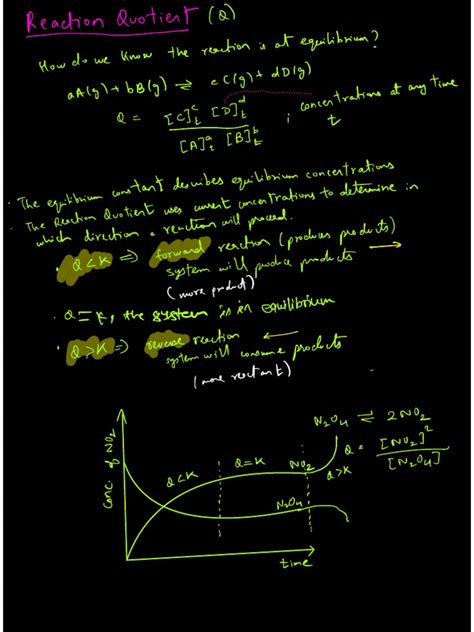 Reaction Quotient (Q)
How do we know the reaction is at equilibrium?
aA(g) + bB(g) ⇌ cC(g) + dD(g)
Q = [C]ᶜₜ [D]ᵈₜ / [A]ᵃₜ [B]ᵇₜ ; concentrations at any time t
· The equilibrium constant describes equilibrium concentrations
· The Reaction Quotient uses current concentrations to determine in
which direction a reaction will proceed.
· Q<K ⇒ forward reaction (produces products) →
system will produce products
(more product)
· Q=K, the system is in equilibrium
· Q>K ⇒ reverse reaction ←
system will consume products
(more reactant)
N₂O₄ ⇌ 2NO₂
Q = [NO₂]² / [N₂O₄]
Conc. of NO₂
Q<K
Q=K
NO₂
Q>K
N₂O₄
time